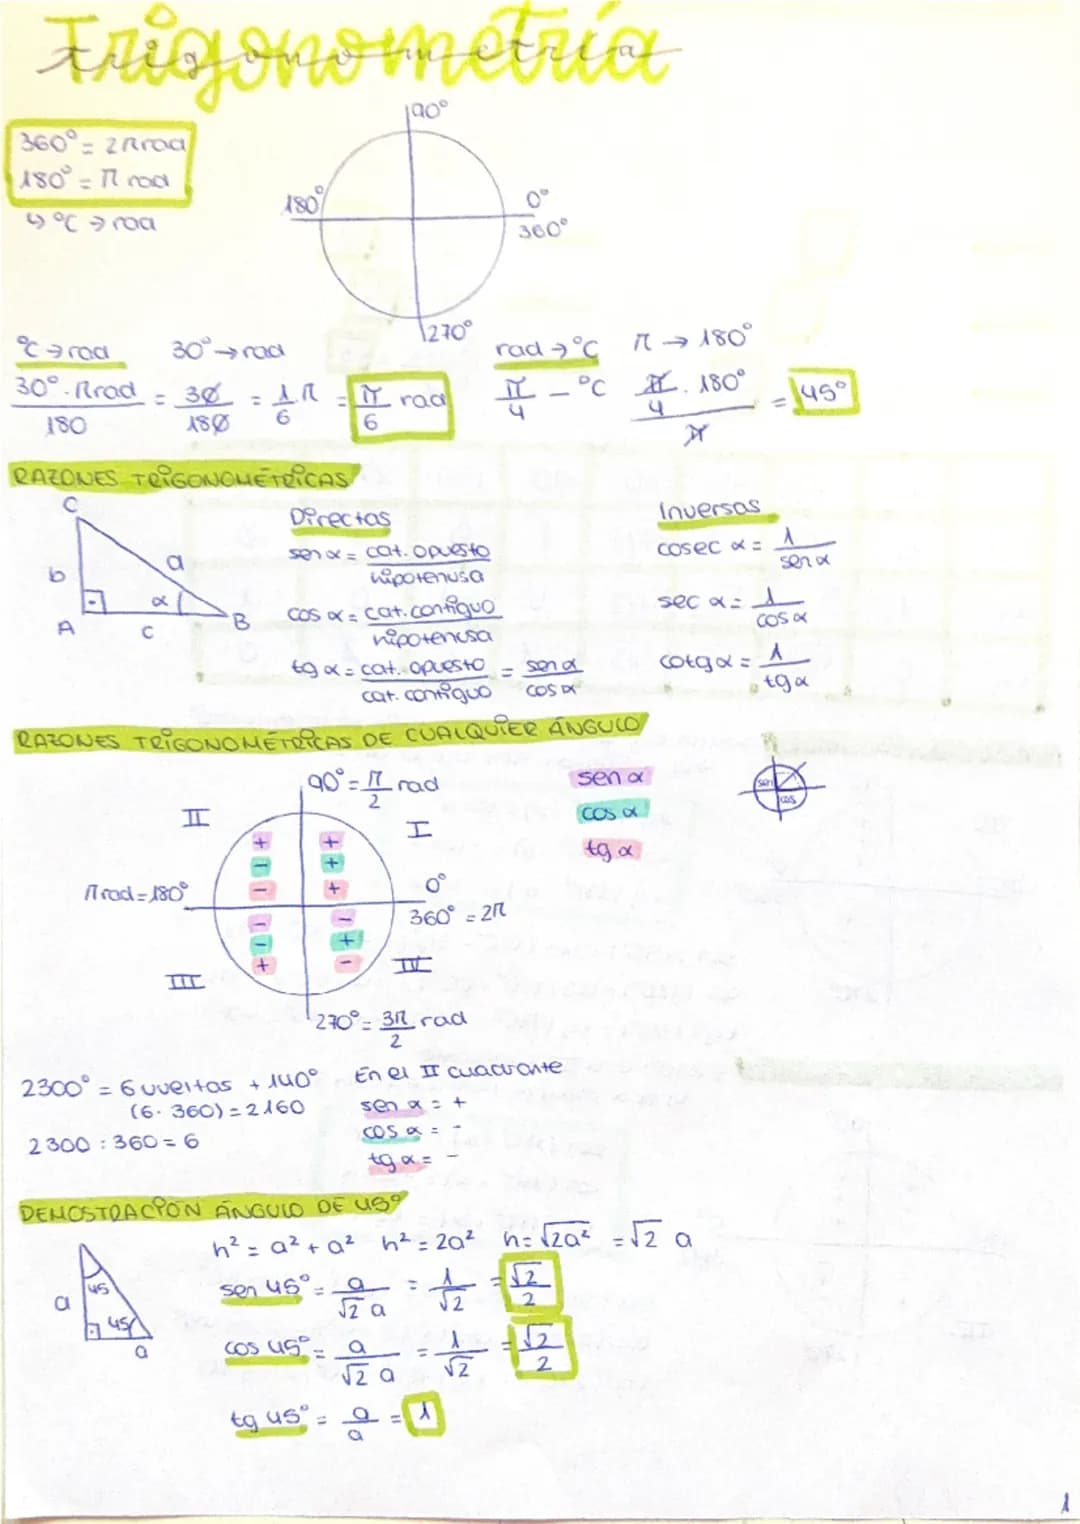 Trigonometría
360° = 2π rad
180° = π rad
↳ °C → rad
90°
180°
0°
360°
270°
°C → rad
30° → rad
30° · π rad / 180 = 30/180 = 1/6 π = π/6 rad
rad → °C
π → 180°
π/4 - °C
π/4 · 180° / π = 45°
RAZONES TRIGONOMÉTRICAS
C
b
a
α
A
c
B
Directas
sen α = cat. opuesto / hipotenusa
cos α = cat. contiguo / hipotenusa
tg α = cat. opuesto / cat. contiguo = sen α / cos α
Inversas
cosec α = 1 / sen α
sec α = 1 / cos α
cotg α = 1 / tg α
RAZONES TRIGONOMÉTRICAS DE CUALQUIER ÁNGULO
90° = π/2 rad
II
I
+ +
- +
- +
π rad = 180°
0°
360° = 2π
- -
- +
+ -
III
IV
270° = 3π/2 rad
sen α
cos α
tg α
sen
cos
2300° = 6 vueltas + 140°
(6 · 360) = 2160
2300 : 360 = 6
En el II cuadrante
sen α = +
cos α = -
tg α = -
DEMOSTRACIÓN ÁNGULO DE 45°
a
45
45
a
h² = a² + a² h² = 2a² h = √2a² = √2 a
sen 45° = a / √2 a = 1 / √2 = √2 / 2
cos 45° = a / √2 a = 1 / √2 = √2 / 2
tg 45° = a / a = 1
1